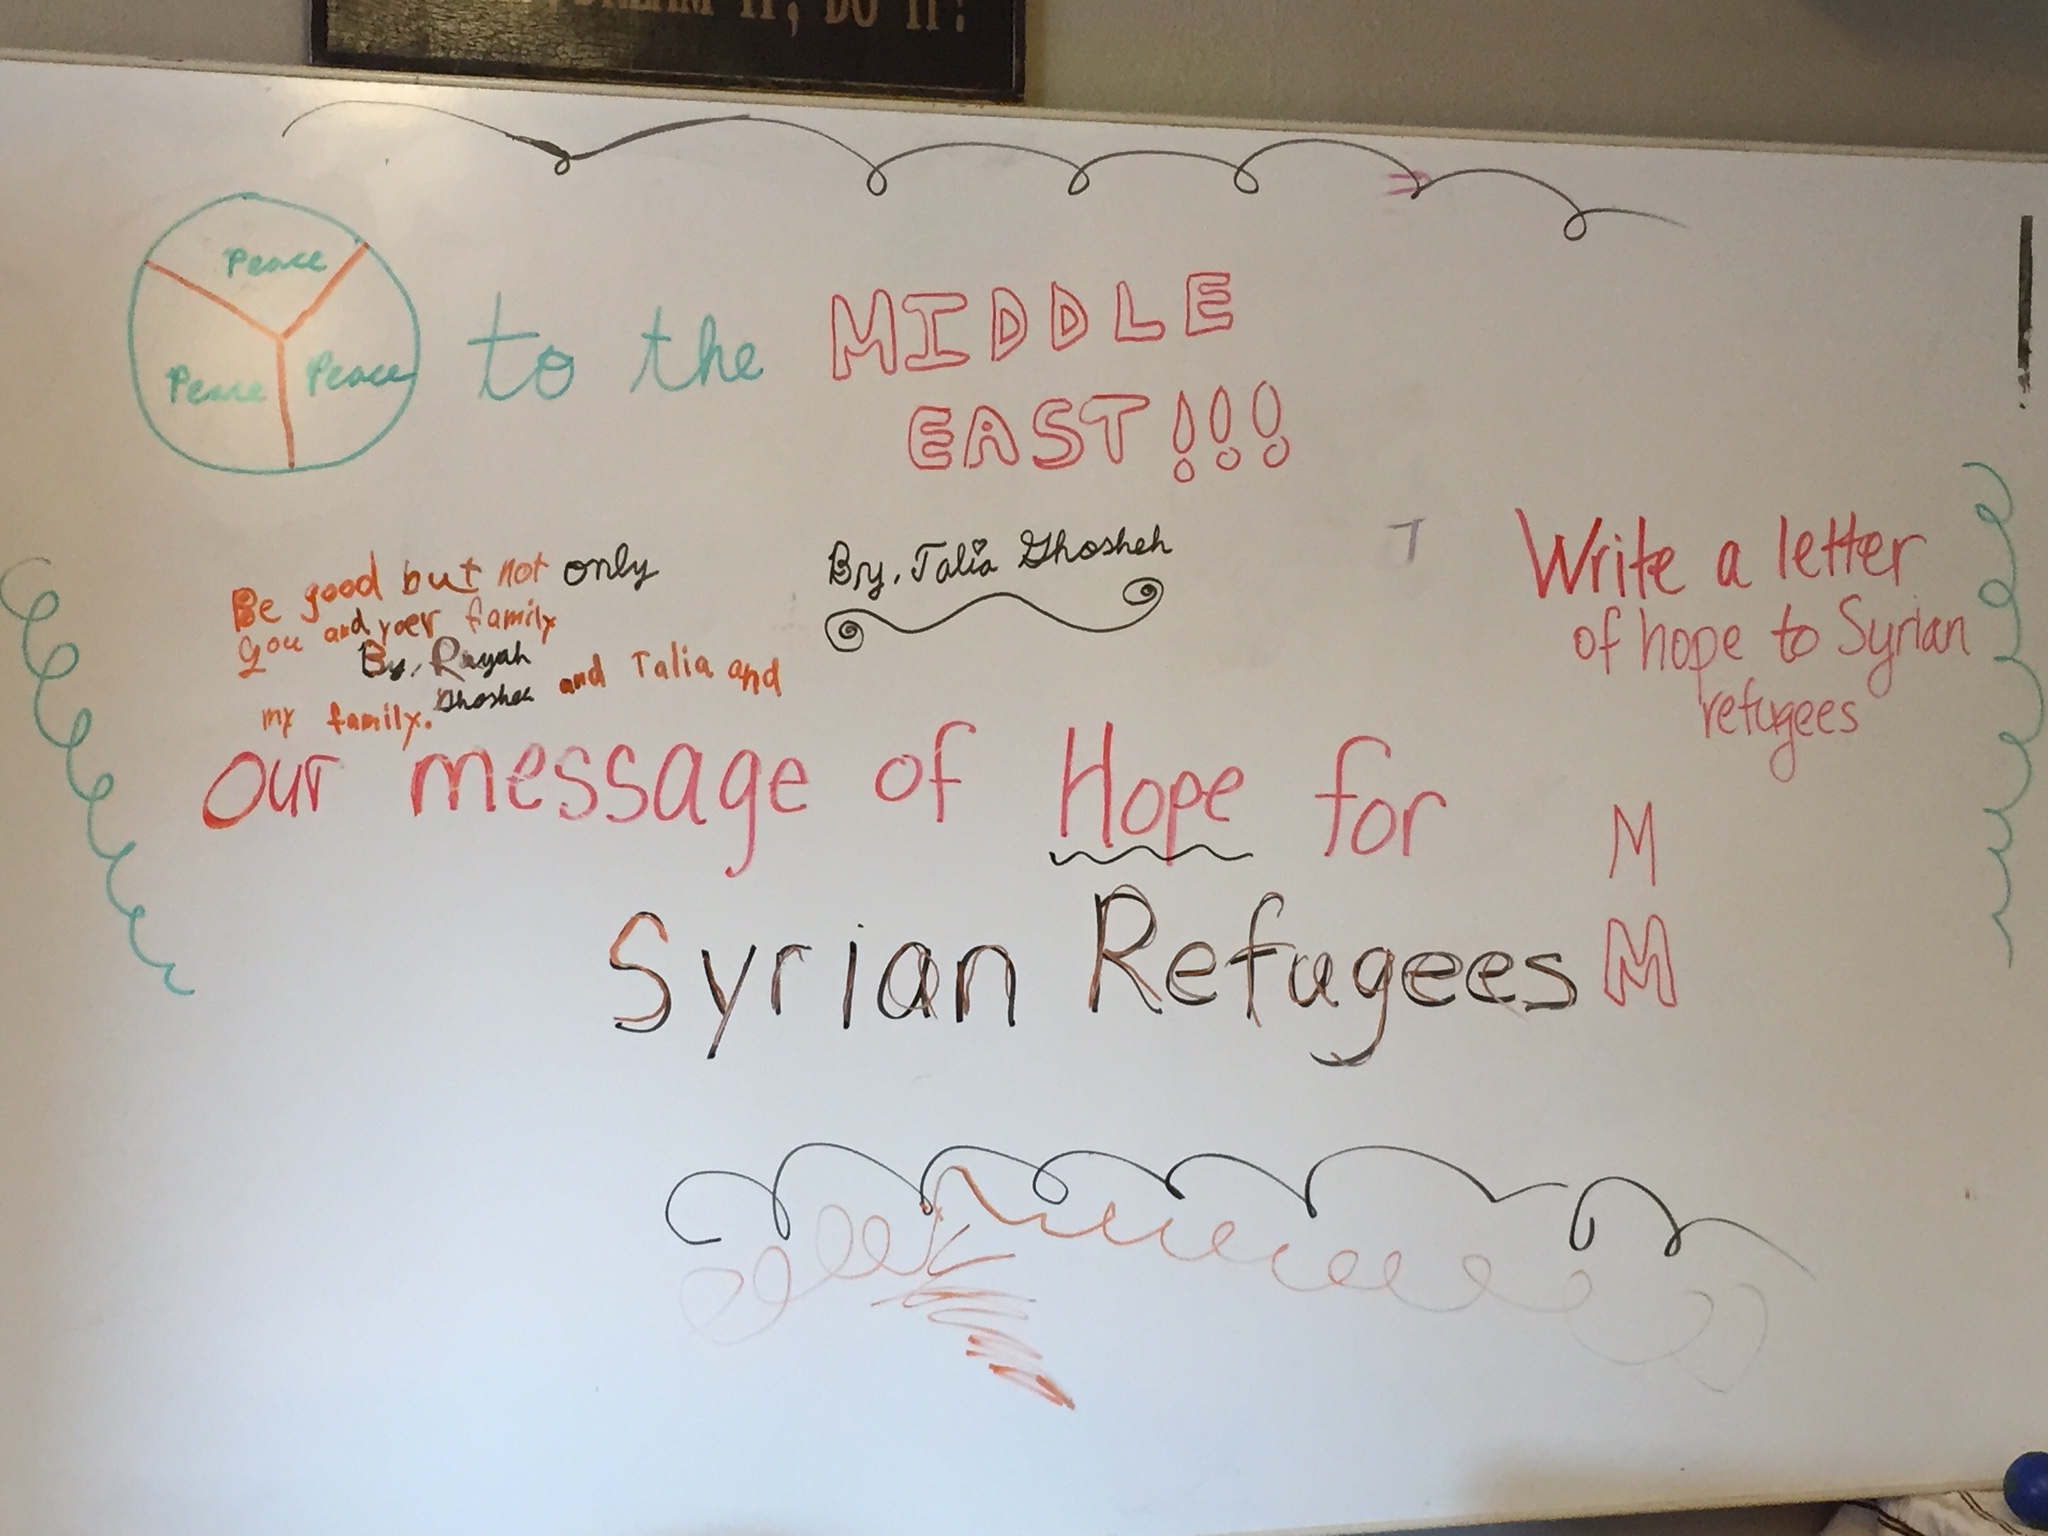 DREAM IT, DO IT!
Peace
Peace Peace
to the MIDDLE
EAST!!!
By, Talia Ghosheh
Be good but not only
you and yoer family
By, Rayah
Ghosheh and Talia and
my family.
T
Write a letter
of hope to Syrian
refugees
our message of Hope for
Syrian Refugees
M
M